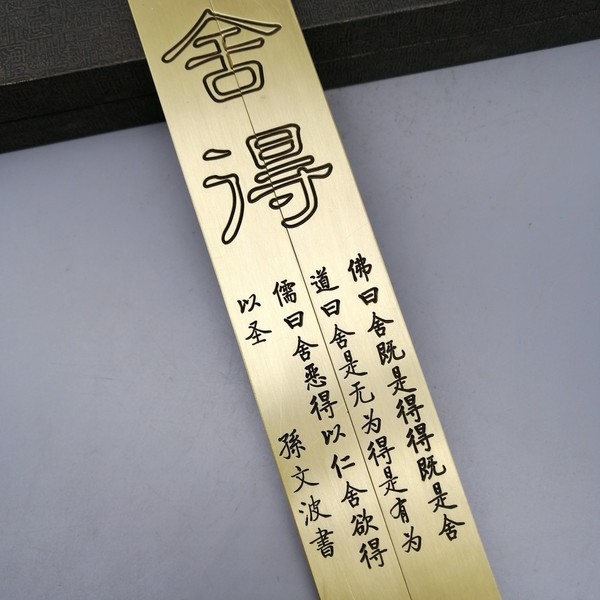 舍得
佛曰舍既是得得既是舍
道曰舍是无为得是有为
儒曰舍恶得以仁舍欲得
以圣
孫文波書